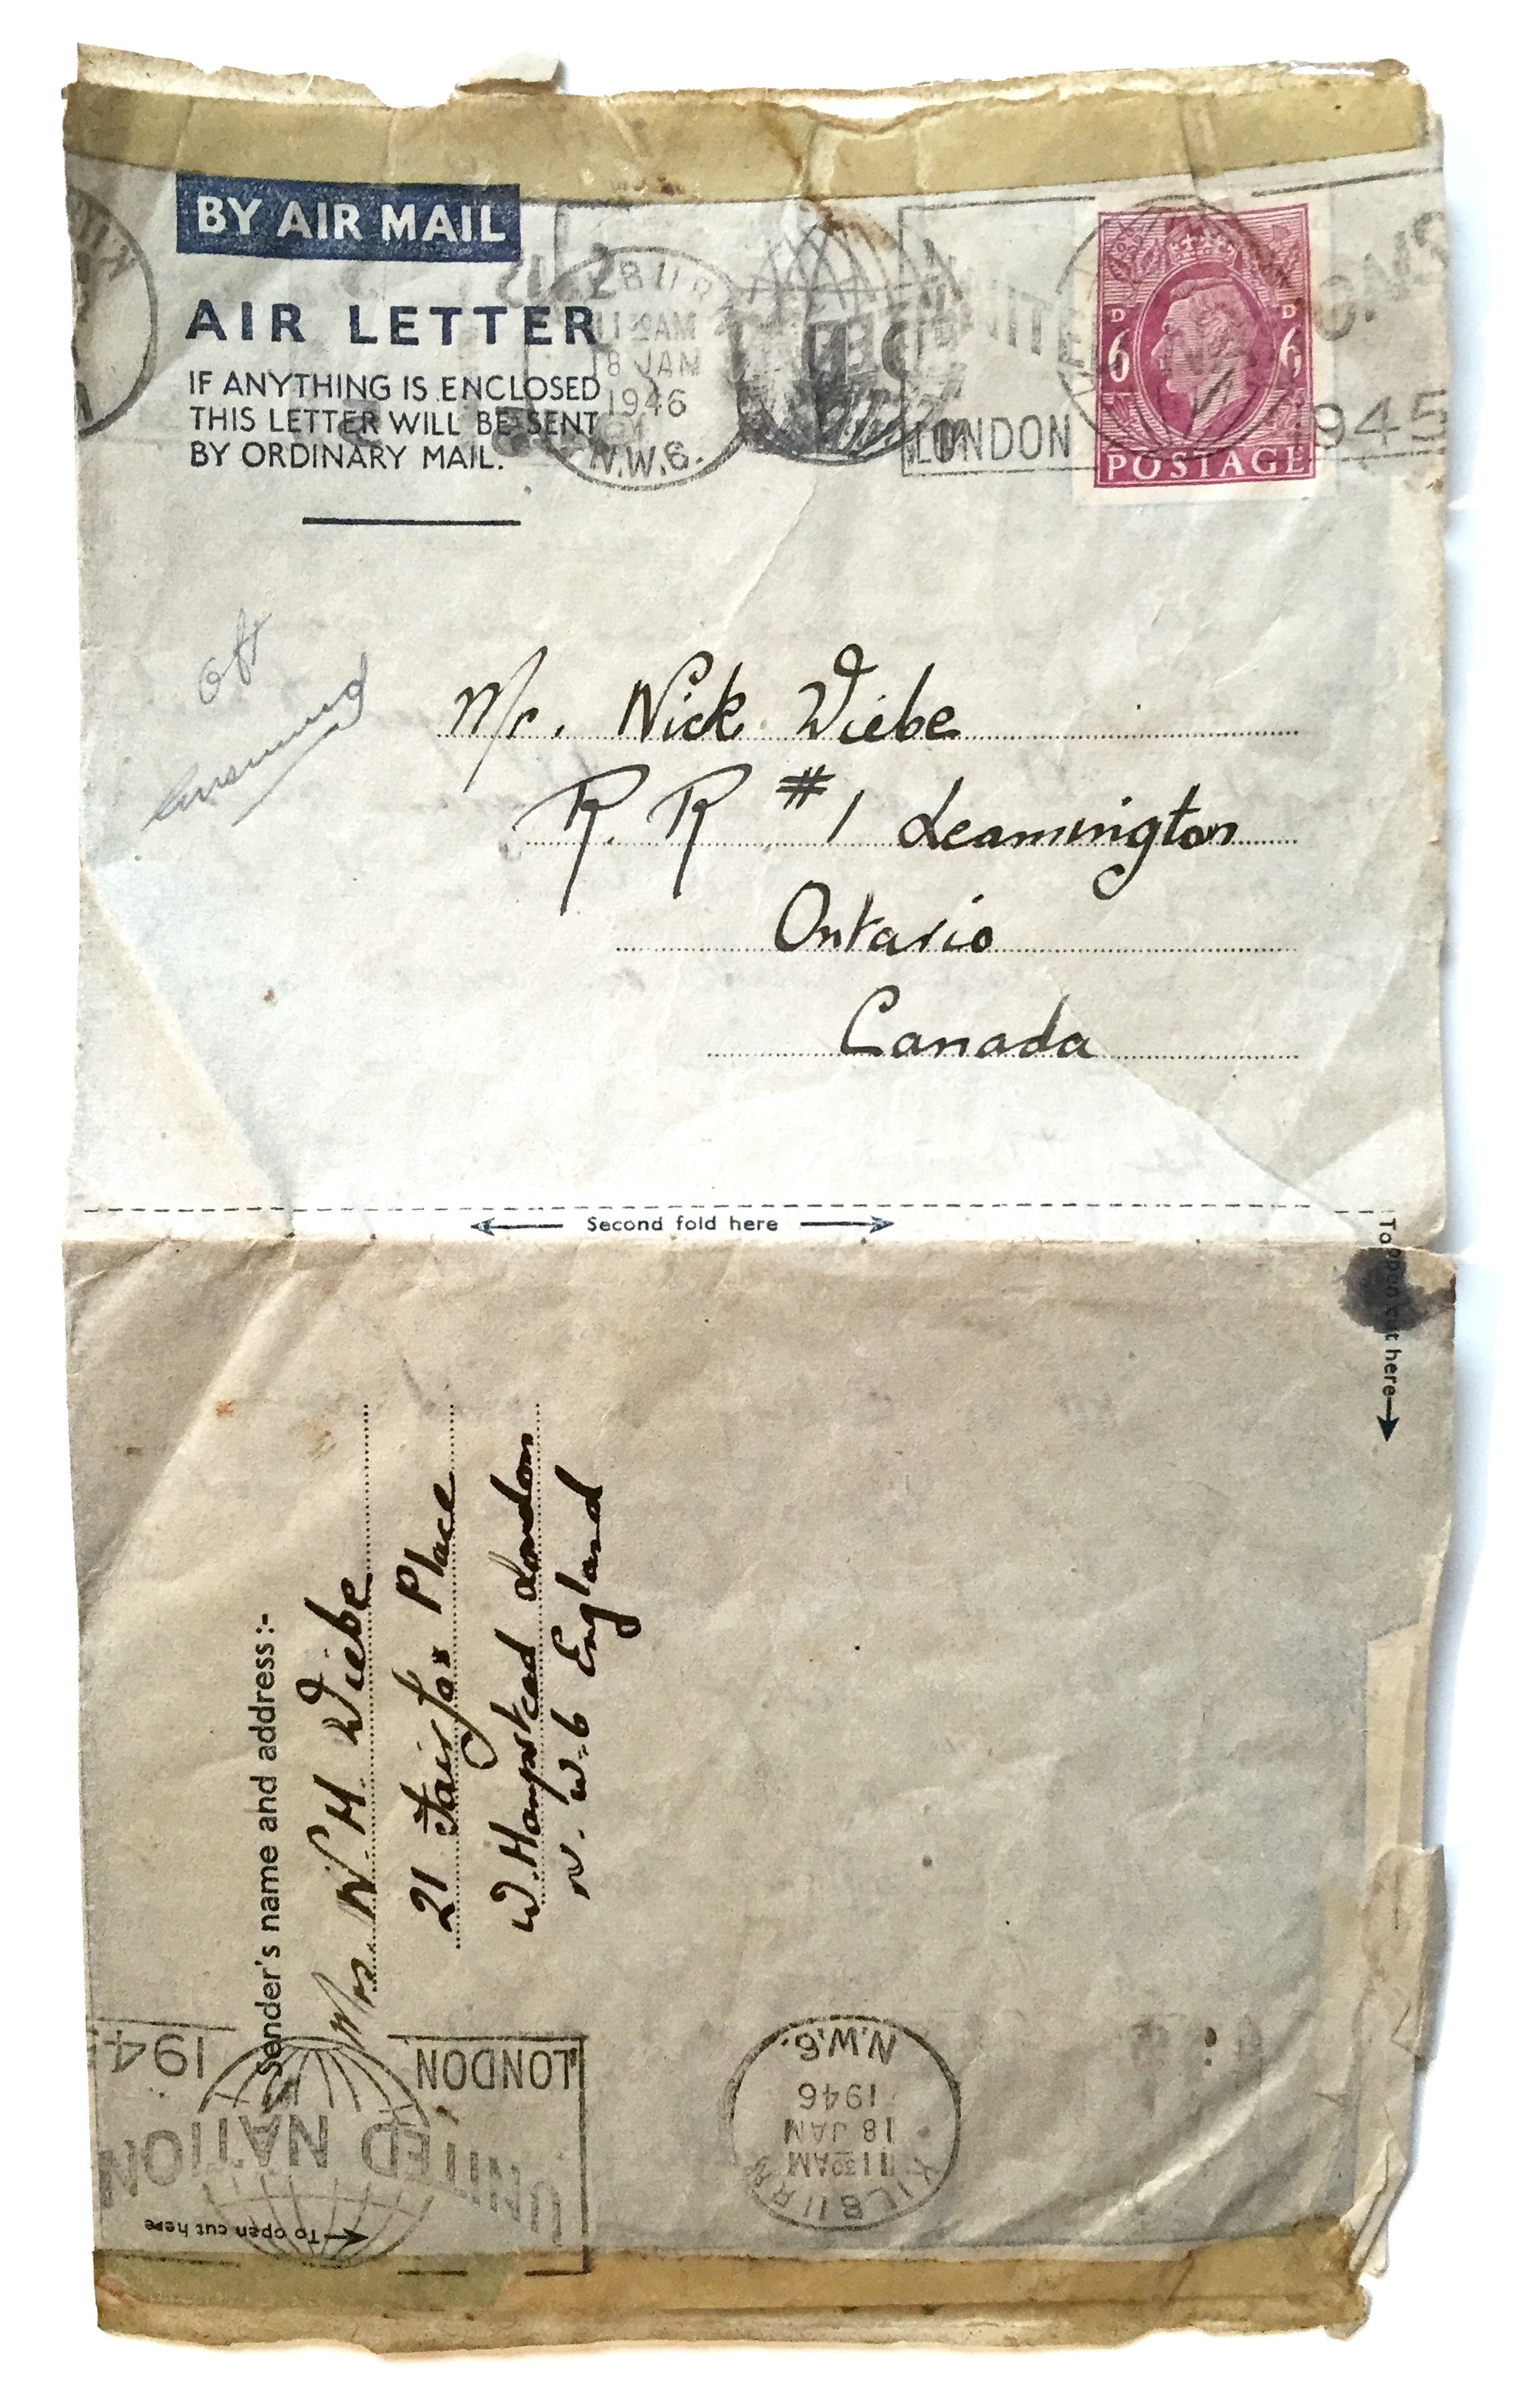 BY AIR MAIL
AIR LETTER
IF ANYTHING IS ENCLOSED
THIS LETTER WILL BE SENT
BY ORDINARY MAIL.
KILBURN
11 30 AM
18 JAN
1946
N.W.6.
UNITED
LONDON 1945
D D
6 6
POSTAGE
Mr. Nick Wiebe
R. R #1 Leamington
Ontario
Canada
Second fold here
To open cut here
Sender's name and address:-
Mrs. W. H. Wiebe
21 Fairfax Place
W. Hampstead London
N. W. 6 England
KILBURN
11 30 AM
18 JAN
1946
N.W.6.
UNITED NATION
LONDON 194
To open cut here